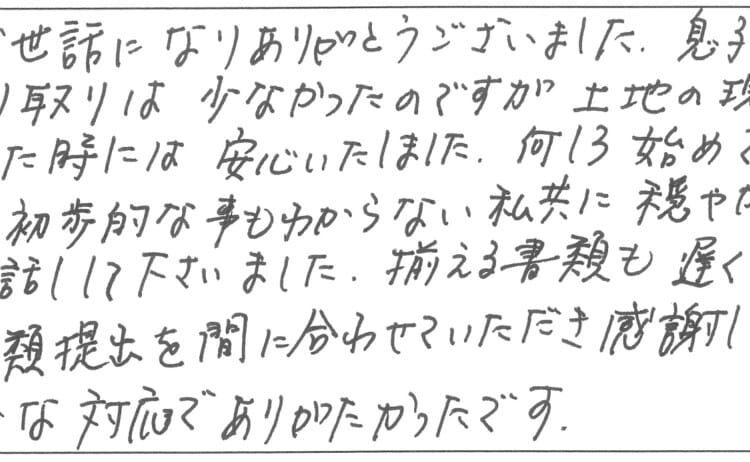 世話になりありがとうございました. 息子
取りは 少なかったのですが 土地の現
た時には 安心いたしました. 何しろ 始めて
初歩的な事もわからない 私共に 穏やか
話しして下さいました. 揃える書類も 遅く
類提出を間に合わせていただき感謝し
な 対応でありがたかったです.